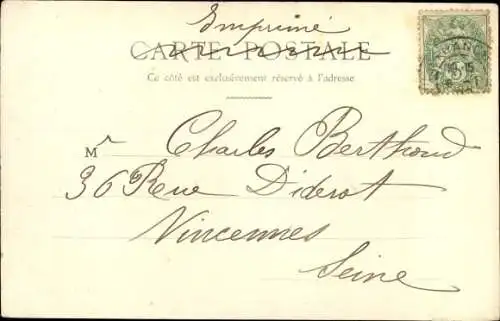 Imprimé
CARTE POSTALE
Ce côté est exclusivement réservé à l'adresse
M Charles Berthoud
36 Rue Diderot
Vincennes
Seine